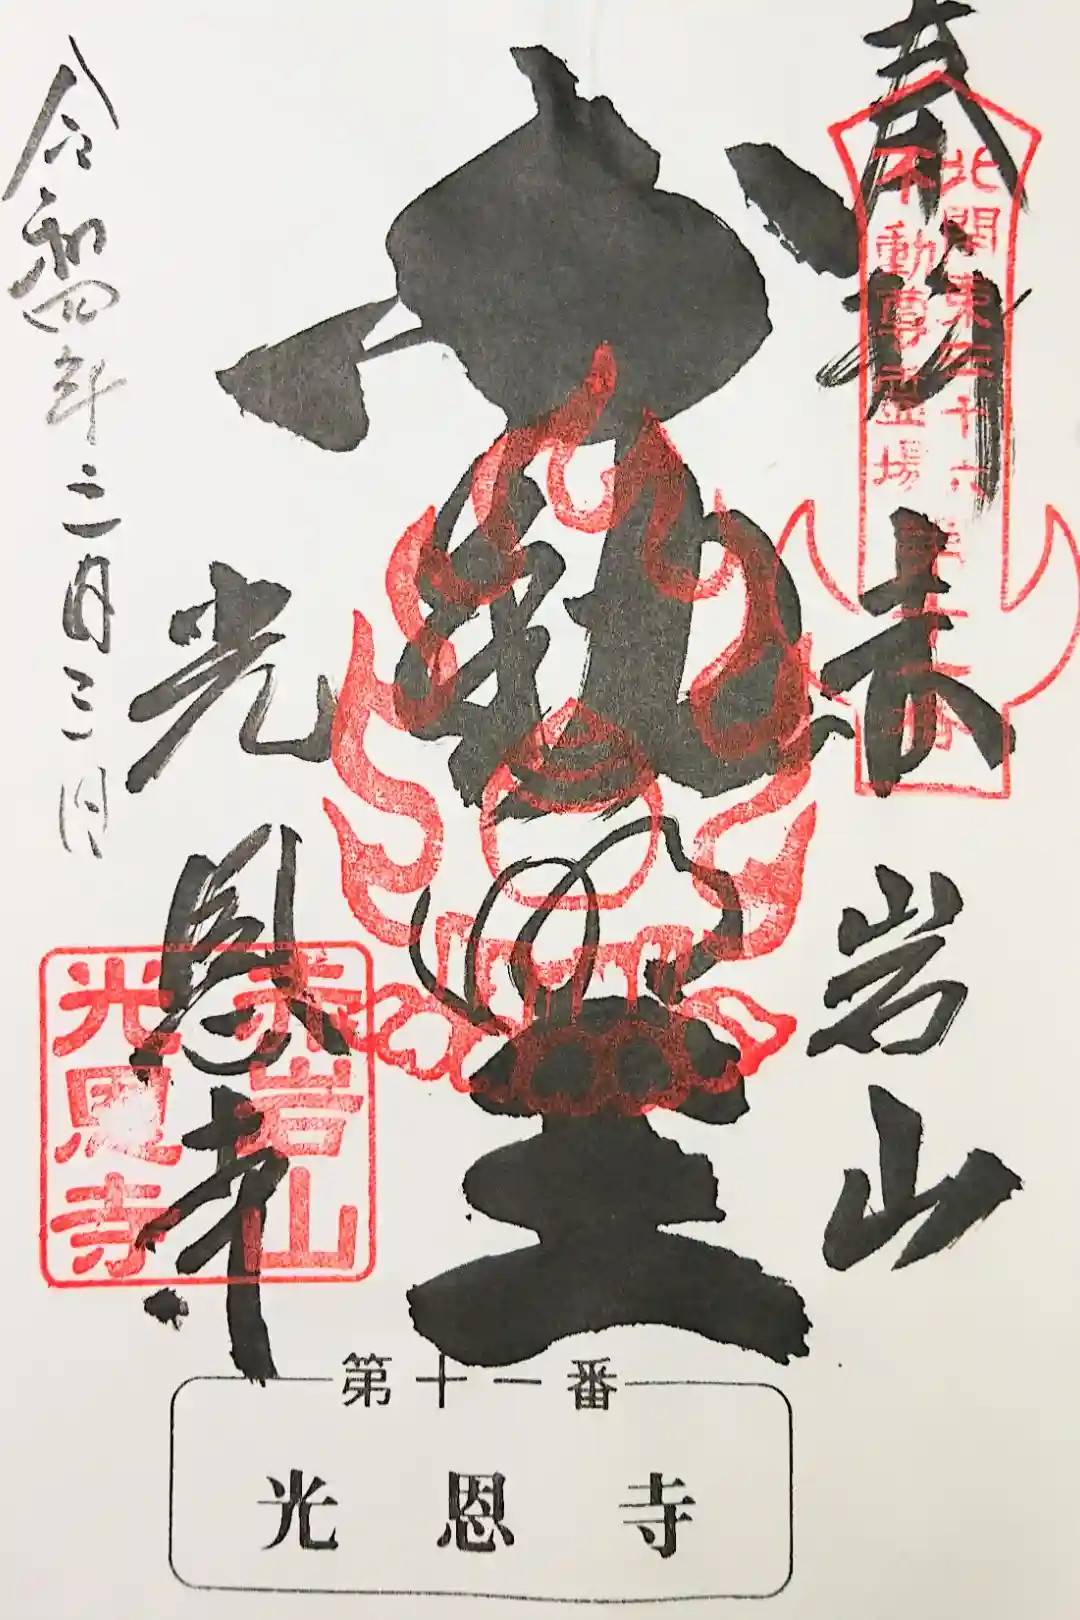 奉拝
北関東三十六
不動尊霊場
赤岩山
光恩寺
令和四年三月三日
赤岩山
光恩寺
第十一番
光恩寺